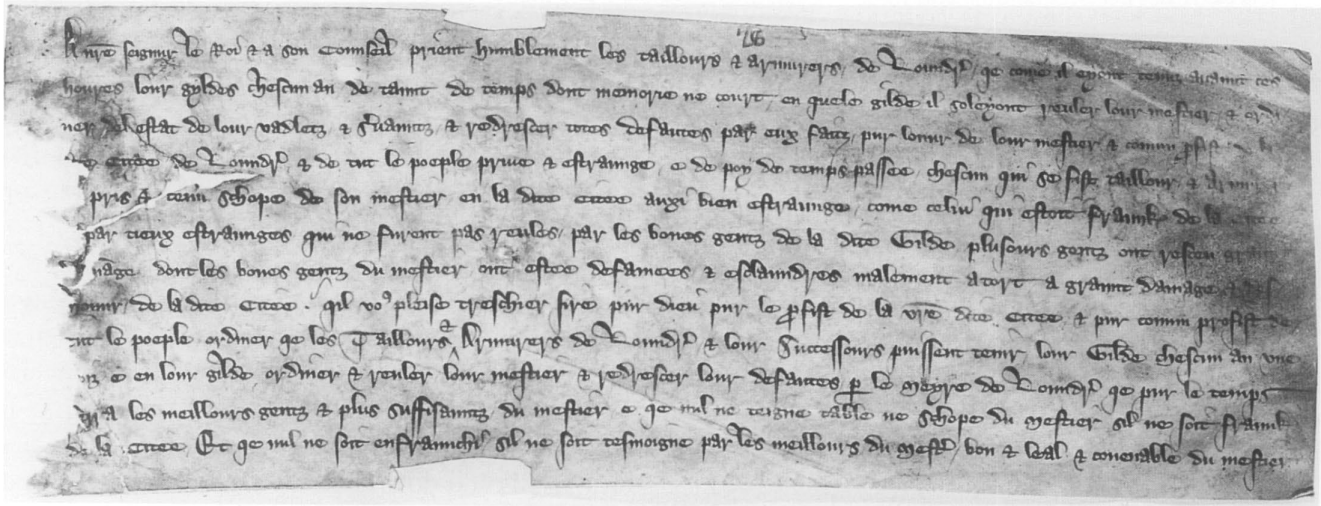 A nr̄e seignur le Roi & a son Counseil prient humblement les taillours & armurers de Loundr̄ qe come il eyent tenuz auaunt ces
houres lour gyldes chescun an de taunt de temps dont memorie ne court en quele gilde il soleyont reuler lour mestier & ordi
ner del estat de lour vadletz & s̄uauntz & redrescer totes defautes par eux faitz pur lonur de lour mestier & comun p̄fist
Citee de Loundr̄ & de tut le poeple priue & estraunge e de poy de temps passee chescun qui se fist taillour & armur
pris & tenu schope de son mestier en la dite citee auxi bien estraunge come celui qui estoit fraunk de la citee
par tieux estraunges qui ne furent pas reules par les bones gentz de la dite Gilde plusours gentz ont resceu graunt
dont les bones gentz du mestier ont estee defamees & esclaundres malement a tort a graunt damage &
de la dite Citee qil vo⁹ pleise treschier sire pur dieu pur le p̄fist de la vr̄e dite Citee & pur comun profist de
tut le poeple ordiner qe les Taillours & Armurers de Loundr̄ & lour Successours puissent tenir lour Gilde chescun an vne
e en lour gilde ordiner & reuler lour mestier & redrescer lour defautes p̄ le Meyre de Loundr̄ qe pur le temps
a les meillours gentz & plus suffisauntz du mestier e qe nul ne teigne table ne schope du mestier sil ne soit fraunk
de la Citee Et qe nul ne soit enfraunchi sil ne soit tesmoigne par les meillours du mest̄ bon & leal & couenable du mestier